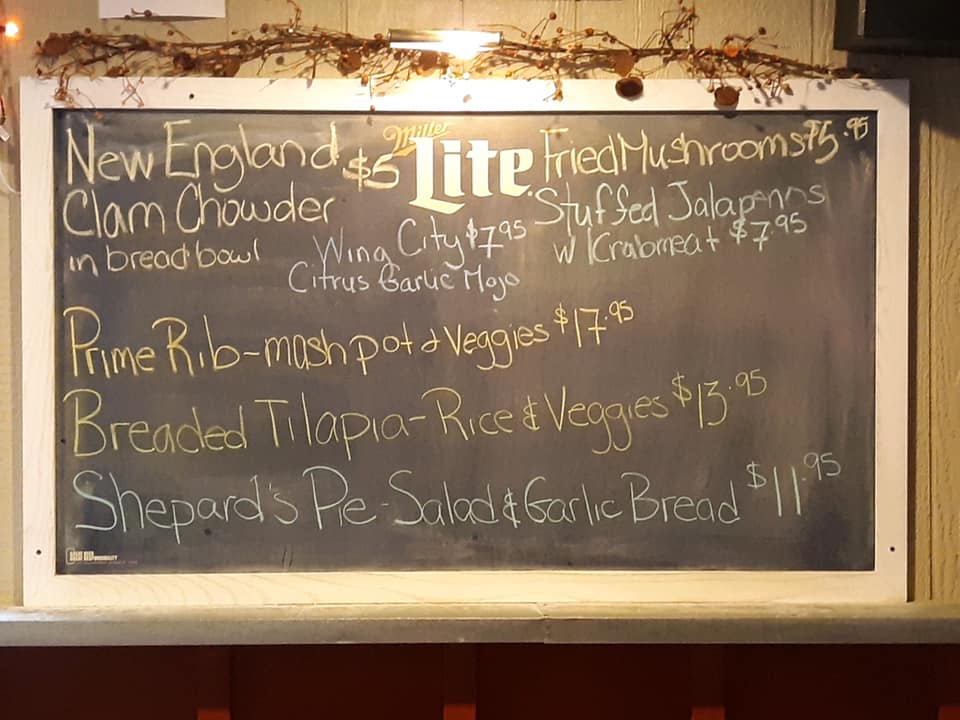 New England $5
Clam Chowder
in bread bowl
Miller
Lite
Fried Mushrooms $5.95
Stuffed Jalapenos
w/ Krabmeat $7.95
Wing City $7.95
Citrus Garlic Mojo
Prime Rib-mash pot & Veggies $17.95
Breaded Tilapia-Rice & Veggies $13.95
Shepard's Pie-Salad & Garlic Bread $11.95